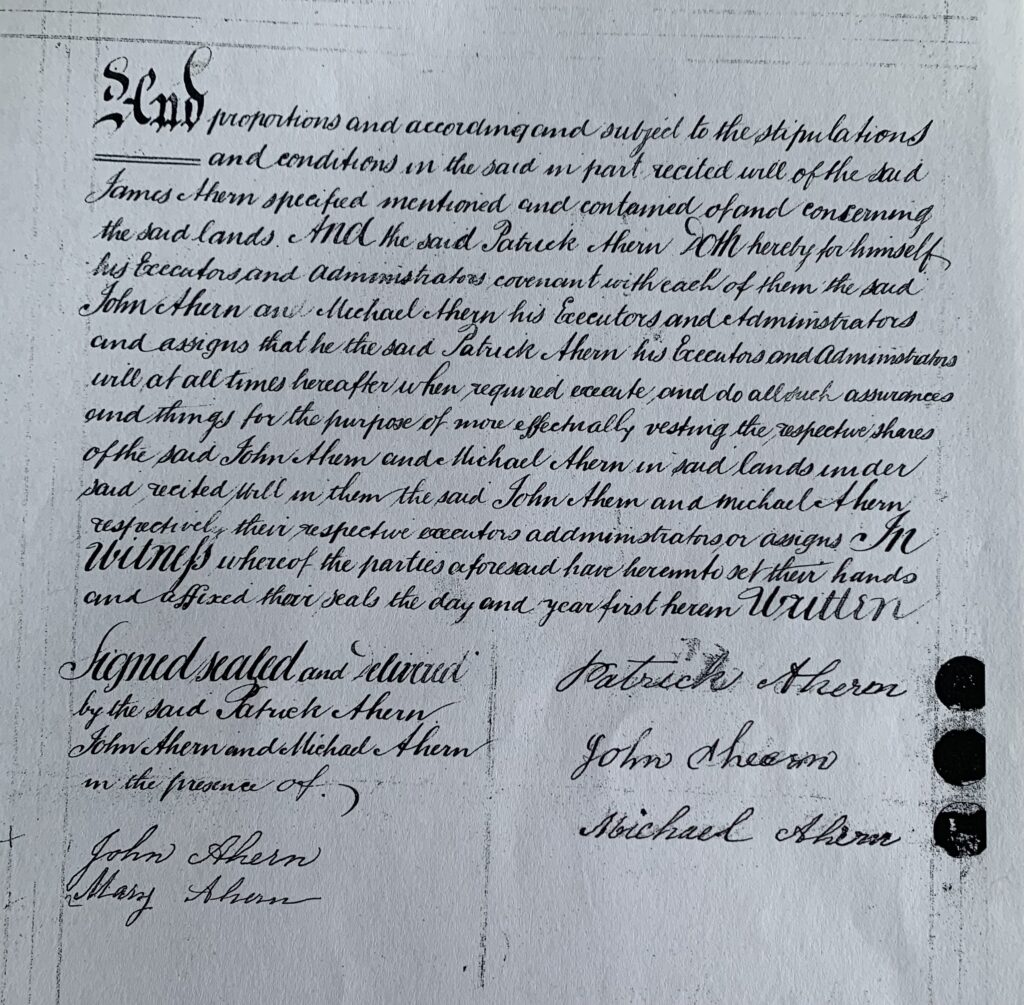 And proportions and accordingand subject to the stipulations
and conditions in the said in part recited will of the said
James Ahern specified mentioned and contained of and concerning
the said lands. AND the said Patrick Ahern Doth hereby for himself
his Executors and Administrators covenant with each of them the said
John Ahern and Michael Ahern his Executors and Administrators
and assigns that he the said Patrick Ahern his Executors and Administrators
will at all times hereafter when required execute and do all such assurances
and things for the purpose of more effectually vesting the respective shares
of the said John Ahern and Michael Ahern in said lands under
said recited Will in them the said John Ahern and Michael Ahern
respectively their respective executors addministrators or assigns In
Witness whereof the parties aforesaid have hereunto set their hands
and affixed their seals the day and year first herein Written
Signed sealed and delivered
by the said Patrick Ahern
John Ahern and Michael Ahern
in the presence of.
John Ahern
Mary Ahern
Patrick Ahern
John Ahern
Michael Ahern